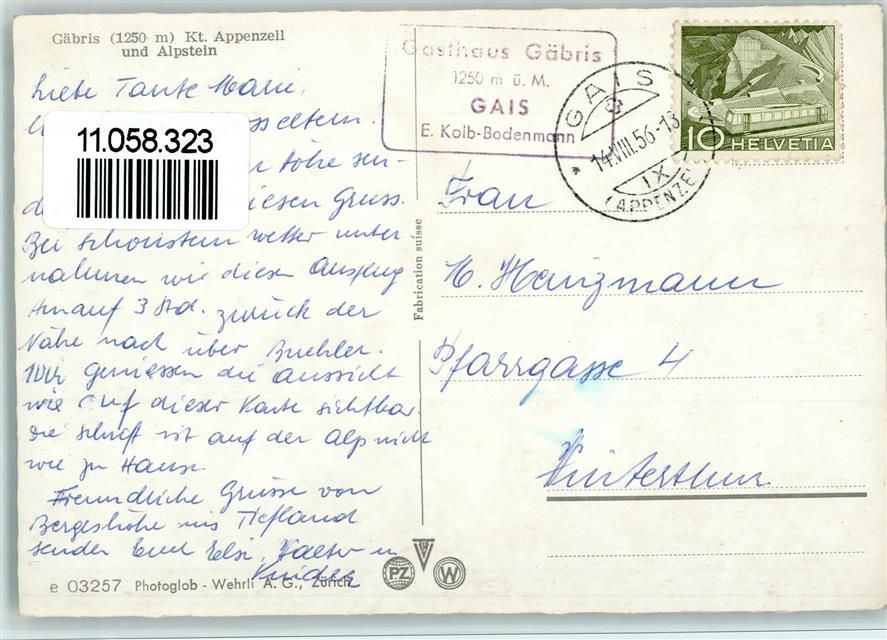 Gäbris (1250 m) Kt. Appenzell
und Alpstein
Gasthaus Gäbris
1250 m ü. M.
GAIS
E. Kolb-Bodenmann
GAIS
14.VIII.56-13
IX
(APPENZE
10 HELVETIA
11.058.323
Liebe Tante Marie,
Höhe sen-
diesen Gruss.
Bei schönstem Wetter unter
nahmen wir diesen Ausflug
hinauf 3 Std. zurück der
Nähe nach über Buehler.
Wir geniessen die Aussicht
wie auf dieser Karte sichtbar.
die Schrift ist auf der Alp nicht
wie zu Hause.
Freundliche Grüsse von
Bergeshöhe ins Tiefland
senden Euch Elsi, Walter u
Kinder
Fabrication suisse
Frau
M. Hanzmann
Pfarrgasse 4
Winterthur
e 03257 Photoglob - Wehrli A. G., Zürich
PZ
W